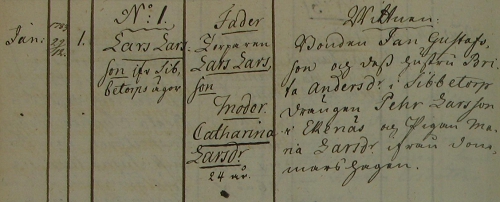 No. 1.
Fader
Wittnen:
Jan:
1.
Lars Lars-
son ifr Sib-
betorps ägor
Torparen
Lars Lars-
son
Moder.
Catharina
Larsdr.
24 år.
Bonden Jan Gustafs-
son och dess hustru Bri-
ta Andersdr. i Sibbetorp
Drängen Pehr Larsson
i Ekenäs och Pigan Ma-
ria Larsdr. ifrån Dom-
mars hagen.